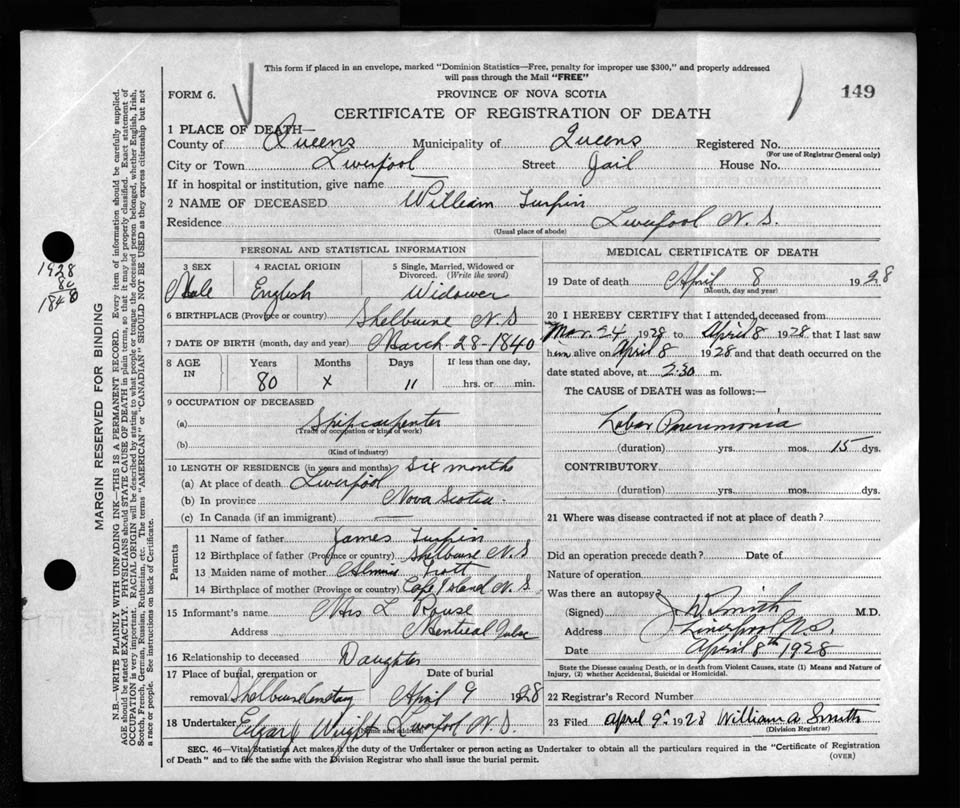 This form if placed in an envelope, marked "Dominion Statistics—Free, penalty for improper use $300," and properly addressed
will pass through the Mail "FREE"
FORM 6.
PROVINCE OF NOVA SCOTIA
149
CERTIFICATE OF REGISTRATION OF DEATH
1 PLACE OF DEATH—
County of Queens Municipality of Queens Registered No.
(For use of Registrar General only)
City or Town Liverpool Street Jail House No.
If in hospital or institution, give name
2 NAME OF DECEASED William Turpin
Residence Liverpool N.S.
(Usual place of abode)
PERSONAL AND STATISTICAL INFORMATION
3 SEX Male
4 RACIAL ORIGIN English
5 Single, Married, Widowed or
Divorced. (Write the word)
Widower
6 BIRTHPLACE (Province or country) Shelburne N.S
7 DATE OF BIRTH (month, day and year) March-28-1840
8 AGE IN
Years 80
Months x
Days 11
If less than one day,
hrs. or min.
9 OCCUPATION OF DECEASED
(a) Shipcarpenter
(Trade or occupation or kind of work)
(b)
(Kind of industry)
10 LENGTH OF RESIDENCE (in years and months) Six months
(a) At place of death Liverpool
(b) In province Nova Scotia
(c) In Canada (if an immigrant)
Parents
11 Name of father James Turpin
12 Birthplace of father (Province or country) Shelburne N.S
13 Maiden name of mother
14 Birthplace of mother (Province or country) Cape Island N.S.
15 Informant's name Mrs L
Address Montreal Quebec
16 Relationship to deceased Daughter
17 Place of burial, cremation or
removal Shelburne Cemetary
Date of burial
April 9 1928
18 Undertaker Edgar Wright Liverpool N.S.
(Name and address)
MEDICAL CERTIFICATE OF DEATH
19 Date of death April 8 1928
(Month, day and year)
20 I HEREBY CERTIFY that I attended deceased from
Mar. 24 1928 to April 8 1928 that I last saw
him alive on April 8 1928 and that death occurred on the
date stated above, at 2.30 m.
The CAUSE of DEATH was as follows:—
Lobar Pneumonia
(duration) yrs. mos. 15 dys.
CONTRIBUTORY
(duration) yrs. mos. dys.
21 Where was disease contracted if not at place of death?
Did an operation precede death? Date of
Nature of operation
Was there an autopsy?
(Signed) J W Smith M.D.
Address Liverpool N.S.
Date April 8th 1928
State the Disease causing Death, or in death from Violent Causes, state (1) Means and Nature of
Injury, (2) whether Accidental, Suicidal or Homicidal.
22 Registrar's Record Number
23 Filed April 9th 1928 William A Smith
(Division Registrar)
SEC. 46—Vital Statistics Act makes it the duty of the Undertaker or person acting as Undertaker to obtain all the particulars required in the "Certificate of Registration
of Death" and to file the same with the Division Registrar who shall issue the burial permit.
(OVER)
1928
80
1848
MARGIN RESERVED FOR BINDING
N.B.—WRITE PLAINLY WITH UNFADING INK—THIS IS A PERMANENT RECORD. Every item of information should be carefully supplied.
AGE should be stated EXACTLY. PHYSICIANS should STATE CAUSE OF DEATH in plain terms, so that it may be properly classified. Exact statement of
OCCUPATION is very important. RACIAL ORIGIN will be described by stating to what people or tongue the deceased person belonged, whether English, Irish,
Scotch, French, German, Russian, Ruthenian, etc. The terms "AMERICAN" or "CANADIAN" SHOULD NOT BE USED as they express citizenship but not
a race or people. See instructions on back of Certificate.